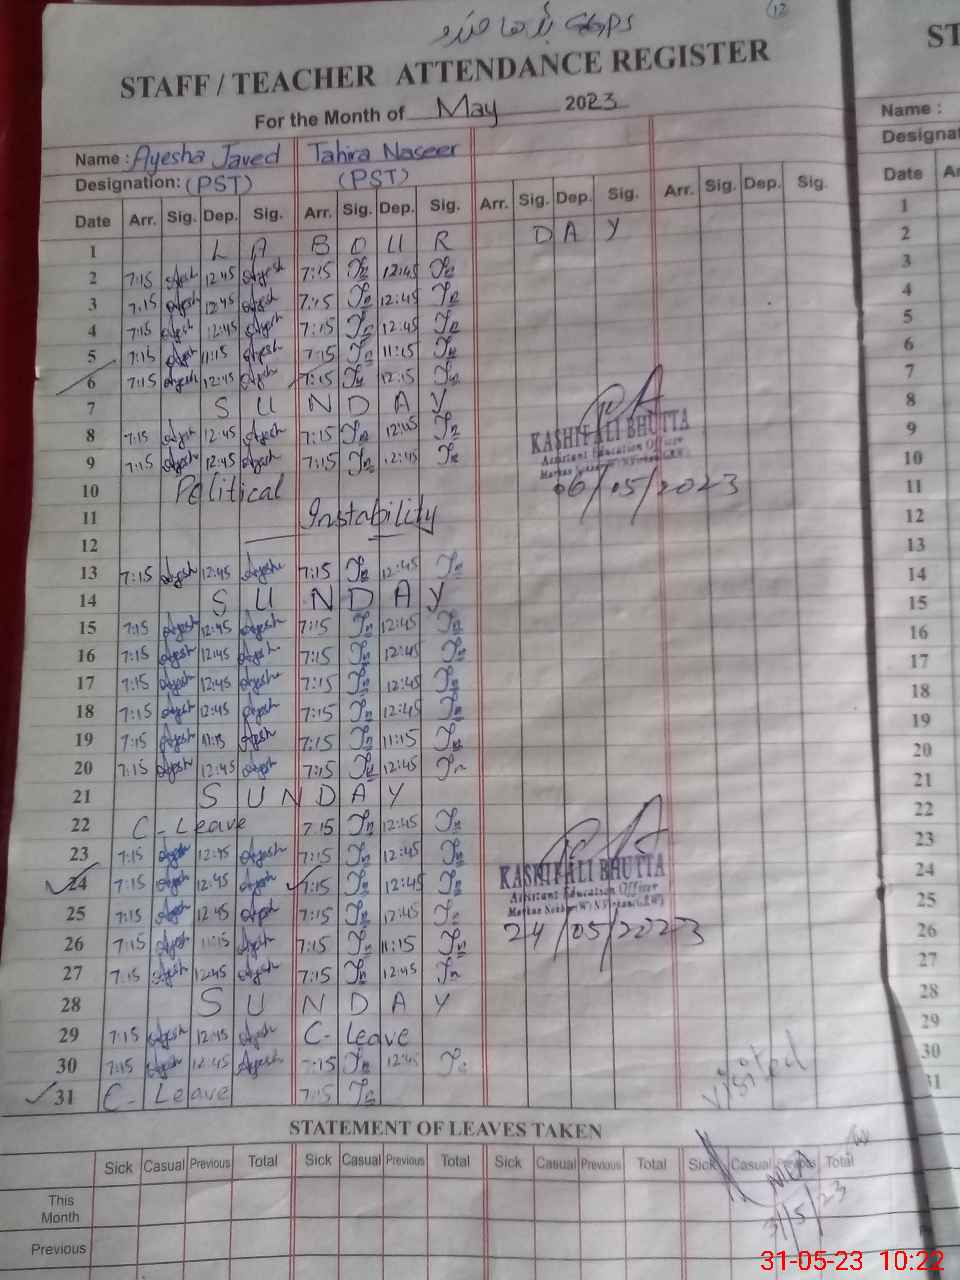 GGPS
12
STAFF / TEACHER ATTENDANCE REGISTER
For the Month of May 2023
Name : Ayesha Javed Tahira Naseer
Designation: (PST) (PST)
Date Arr. Sig. Dep. Sig. Arr. Sig. Dep. Sig. Arr. Sig. Dep. Sig. Arr. Sig. Dep. Sig.
1 L A B O U R D A Y
2 7:15 Ayesh 12:45 Ayesh 7:15 Tn 12:45 Tn
3 7:15 Ayesh 12:45 Ayesh 7:15 Tn 12:45 Tn
4 7:15 Ayesh 12:45 Ayesh 7:15 Tn 12:45 Tn
5 7:15 Ayesh 11:15 Ayesh 7:15 Tn 11:15 Tn
6 7:15 Ayesh 12:45 Ayesh 7:15 Tn 12:15 Tn
7 S U N D A Y
8 7:15 Ayesh 12:45 Ayesh 7:15 Tn 12:45 Tn
9 7:15 Ayesh 12:45 Ayesh 7:15 Tn 12:45 Tn
KASHIF ALI BHUTTA
Assistant Education Officer
06/05/2023
10 Political
11 Instability
12
13 7:15 Ayesh 12:45 Ayesh 7:15 Tn 12:45 Tn
14 S U N D A Y
15 7:15 Ayesh 12:45 Ayesh 7:15 Tn 12:45 Tn
16 7:15 Ayesh 12:45 Ayesh 7:15 Tn 12:45 Tn
17 7:15 Ayesh 12:45 Ayesh 7:15 Tn 12:45 Tn
18 7:15 Ayesh 12:45 Ayesh 7:15 Tn 12:45 Tn
19 7:15 Ayesh 11:15 Ayesh 7:15 Tn 11:15 Tn
20 7:15 Ayesh 12:45 Ayesh 7:15 Tn 12:45 Tn
21 S U N D A Y
22 C-Leave 7:15 Tn 12:45 Tn
23 7:15 Ayesh 12:45 Ayesh 7:15 Tn 12:45 Tn
24 7:15 Ayesh 12:45 Ayesh 7:15 Tn 12:45 Tn
KASHIF ALI BHUTTA
Assistant Education Officer
24/05/2023
25 7:15 Ayesh 12:45 Ayesh 7:15 Tn 12:45 Tn
26 7:15 Ayesh 11:15 Ayesh 7:15 Tn 11:15 Tn
27 7:15 Ayesh 12:45 Ayesh 7:15 Tn 12:45 Tn
28 S U N D A Y
29 7:15 Ayesh 12:45 Ayesh C-Leave
30 7:15 Ayesh 12:45 Ayesh 7:15 Tn 12:45 Tn
31 C-Leave 7:15 Tn
Visited
STATEMENT OF LEAVES TAKEN
Sick Casual Previous Total Sick Casual Previous Total Sick Casual Previous Total Sick Casual Previous Total
This
Month
Previous
31/5/23
ST
Name :
Designat
Date Ar
1
2
3
4
5
6
7
8
9
10
11
12
13
14
15
16
17
18
19
20
21
22
23
24
25
26
27
28
29
30
31
31-05-23 10:22